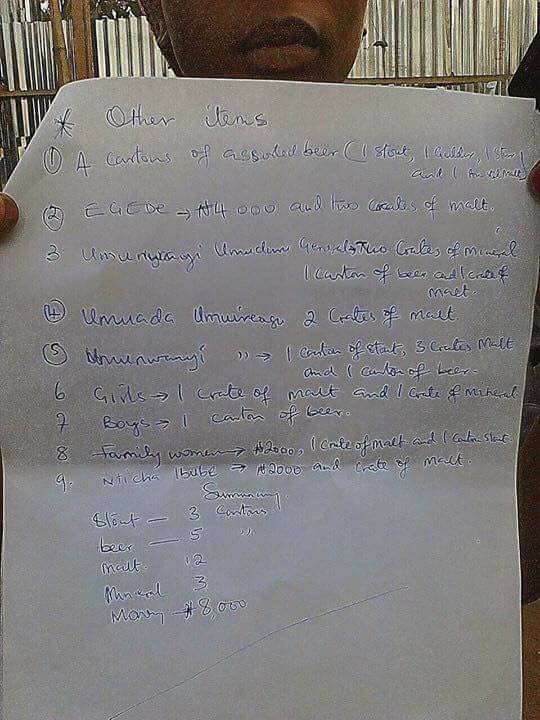 * Other items
① A cartons of assorted beer (1 stout, 1 Gulder, 1 Star
and 1 Malt)
② EGEDE → ₦4 000 and two crates of malt.
3 Umunwanyi Umudim General → Two Crates of mineral
1 Carton of beer and 1 crate of
malt.
④ Umuada 2 Crates of malt.
⑤ Umunwanyi " → 1 carton of stout, 3 Crates Malt
and 1 Carton of beer.
6 Girls → 1 crate of malt and 1 crate of Mineral
7 Boys → 1 canton of beer.
8 Family women → ₦2000, 1 crate of malt and 1 Carton stout.
9. Nticha Ibube → ₦2000 and crate of malt.
Summary
Stout — 3 Cartons
beer — 5 "
malt. 12
Mineral 3
Money → ₦8,000